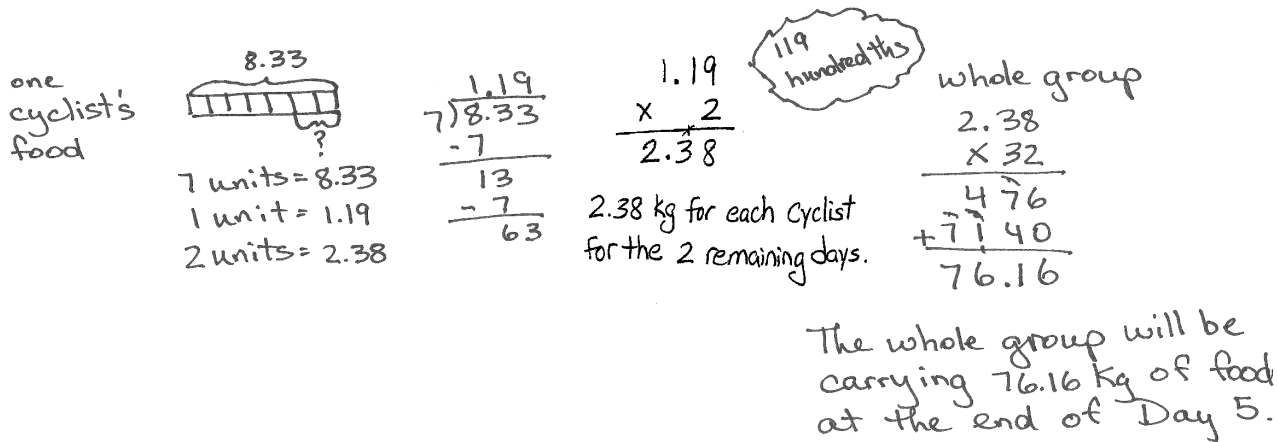 one
cyclist's
food
8.33
?
7 units = 8.33
1 unit = 1.19
2 units = 2.38
1.19
7)8.33
-7
13
- 7
63
1.19
x 2
2.38
2.38 kg for each cyclist
for the 2 remaining days.
119
hundredths
whole group
2.38
x 32
476
+7140
76.16
The whole group will be
carrying 76.16 kg of food
at the end of Day 5.